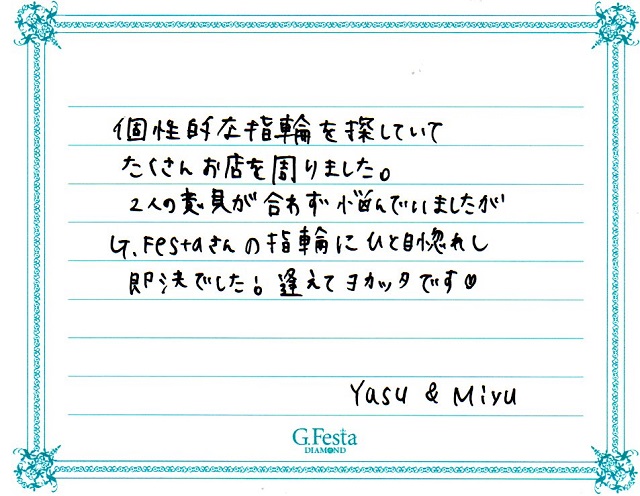 個性的な指輪を探していて
たくさんお店を周りました。
2人の意見が合わず悩んでいましたが
G.Festaさんの指輪にひと目惚れし
即決でした！逢えてヨカッタです♡
Yasu & Miyu
G.Festa
DIAMOND